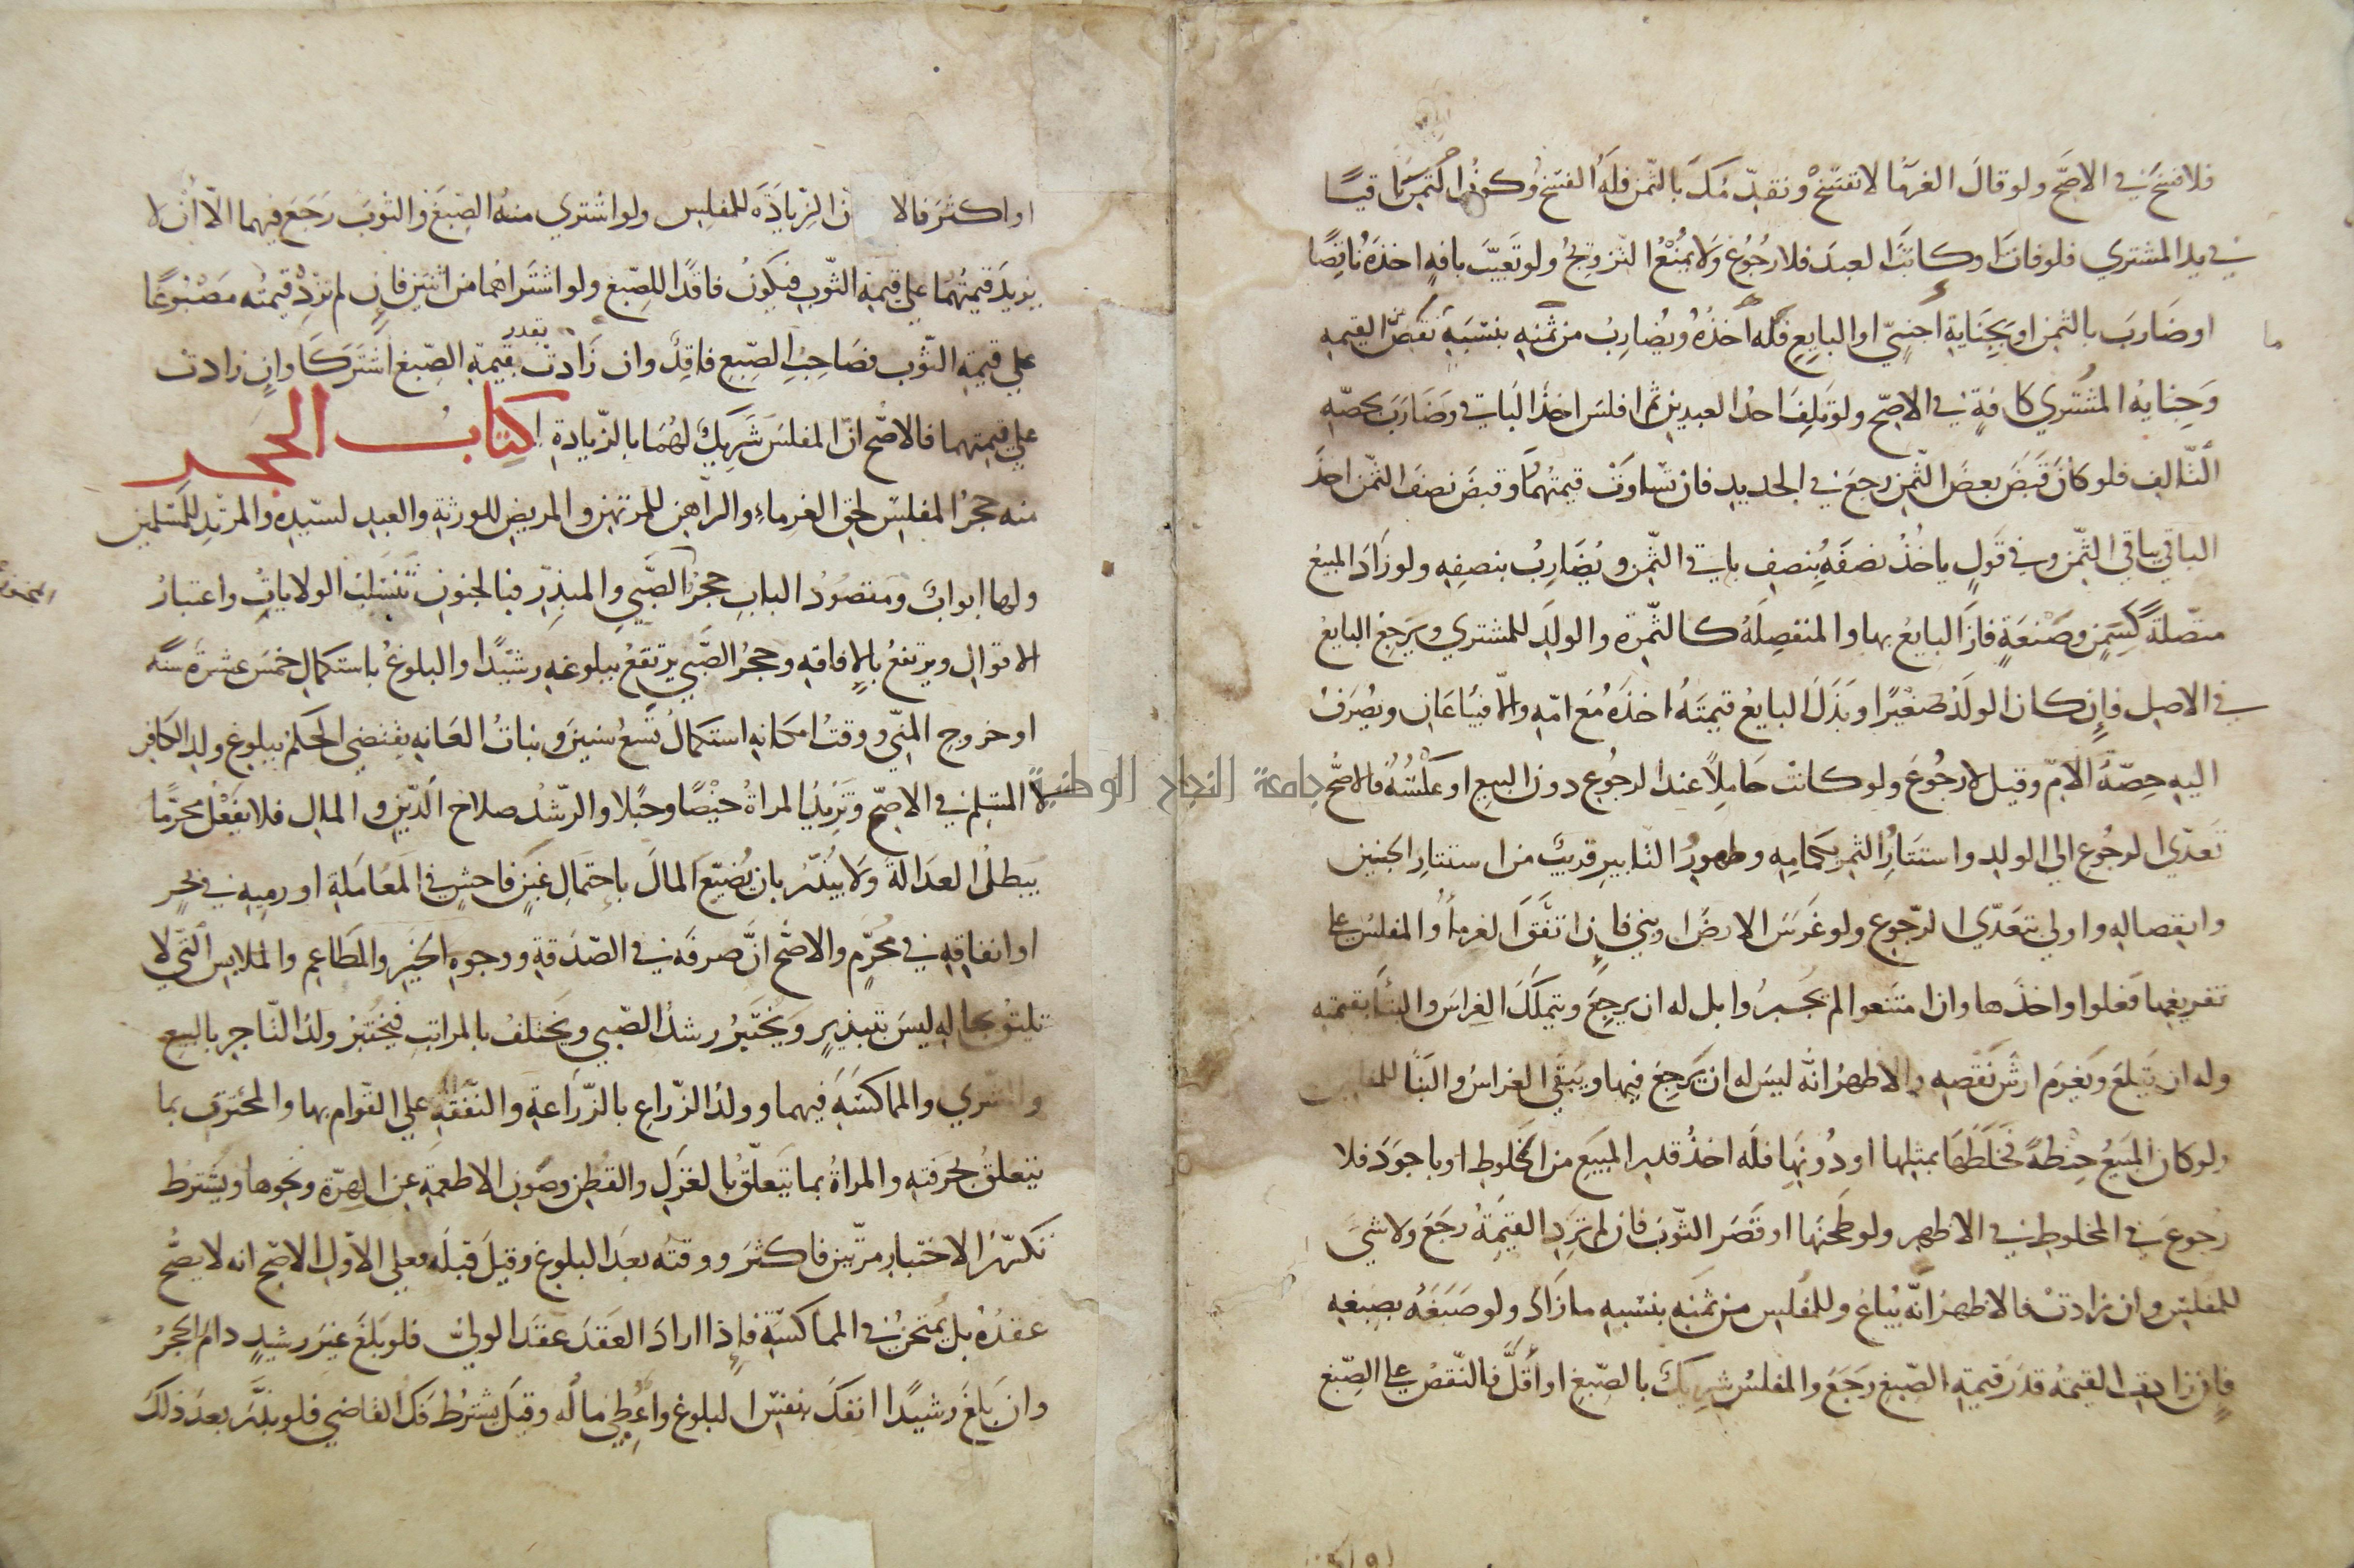 فلا فسخ في الاصح ولو قال الغرما لا تفسخ ونقدمك بالثمن فله الفسخ وكون الثمن باقيا
في يد المشتري فلو فات او كاتب العبد فلا رجوع ولا يمنع التزويج ولو تعيب بافة اخذه ناقصا
ما
او ضارب بالثمن او بجناية اجنبي او البايع فله اخذه ويضارب من ثمنه بنسبة نقص القيمه
وجناية المشتري كافة في الاصح ولو تلف احد العبدين ثم افلس اخذ الباقي وضارب بحصه
التالف فلو كان قبض بعض الثمن رجع في الجديد فان تساوت قيمتهما وقبض نصف الثمن اخذ
الباقي بباقي الثمن وفي قول ياخذ نصفه بنصف باقي الثمن ويضارب بنصفه ولو زاد المبيع
متصلة كسمن وصنعة فاز البايع بها والمنفصله كالثمرة والولد للمشتري ويرجع البايع
في الاصل فان كان الولد صغيرا وبذل البايع قيمته اخذه مع امه والا فيباعان ويصرف
اليه حصة الام وقيل لا رجوع ولو كانت حاملا عند الرجوع دون البيع او عكسه فالاصح
تعدي الرجوع الى الولد واستتار الثمر بكمامه وظهوره التابير قريب من استتار الجنين
وانفصاله واولي بتعدي الرجوع ولو غرس الارض او بني فان اتفق الغرماء والمفلس علي
تفريغها فعلوا واخذها وان امتنعوا لم يجبروا بل له ان يرجع ويتملك الغراس والبنا بقيمته
وله ان يقلع ويغرم ارش نقصه والاظهر انه ليس له ان يرجع فيها ويبقي الغراس والبنا للمفلس
ولو كان المبيع حنطة فخلطها بمثلها او دونها فله اخذ قدر المبيع من المخلوط او باجود فلا
رجوع في المخلوط في الاظهر ولو طحنها او قصر الثوب فان لم تزد القيمة رجع ولا شي
للمفلس وان زادت فالاظهر انه يباع وللمفلس من ثمنه بنسبه ما زاد ولو صبغه بصبغه
فان زادت القيمة قدر قيمة الصبغ رجع والمفلس شريك بالصبغ او اقل فالنقص علي الصبغ
او اكثر فالا ن الزيادة للمفلس ولو اشتري منه الصبغ والثوب رجع فيهما الا ان لا
يزيد قيمتهما علي قيمة الثوب فيكون فاقدا للصبغ ولو اشتراهما من اثنين فان لم تزد قيمته مصبوغا
علي قيمة الثوب فصاحب الصبغ فاقد وان زادت بقدر قيمة الصبغ اشتركا وان زادت
علي قيمتهما فالاصح ان المفلس شريك لهما بالزيادة كتاب الحجر
منه حجر المفلس لحق الغرماء والراهن للمرتهن والمريض للورثة والعبد لسيده والمرتد للمسلمين
ولها ابواب ومقصود الباب حجر الصبي والمبذر فبالجنون تنسلب الولايات واعتبار
الاقوال ويرتفع بالافاقه وحجر الصبي يرتفع ببلوغه رشيدا والبلوغ باستكمال خمس عشرة سنة
او خروج المني ووقت امكانه استكمال تسع سنين ونبات العانه يقتضي الحكم ببلوغ ولد الكافر
لا المسلم في الاصح وتزيد المراة حيضا وحبلا والرشد صلاح الدين والمال فلا يفعل محرما
يبطل العدالة ولا يبذر بان يضيع المال باحتمال غبن فاحش في المعاملة او رميه في بحر
او انفاقه في محرم والاصح ان صرفه في الصدقة ووجوه الخير والمطاعم والملابس التي لا
تليق بحاله ليس بتبذير ويختبر رشد الصبي ويختلف بالمراتب فيختبر ولد التاجر بالبيع
والشري والمماكسة فيهما وولد الزراع بالزراعة والنفقة علي القوام بها والمحترف بما
يتعلق بحرفته والمراة بما يتعلق بالغزل والقطن وصون الاطعمة عن الهرة ونحوها ويشترط
تكرر الاختبار مرتين فاكثر ووقته بعد البلوغ وقيل قبله فعلي الاول الاصح انه لا يصح
عقده بل يمتحن في المماكسة فاذا اراد العقد عقد الولي فلو بلغ غير رشيد دام الحجر
وان بلغ رشيدا انفك بنفس البلوغ واعطي ماله وقيل يشترط فك القاضي فلو بذر بعد ذلك
جامعة النجاح الوطنية